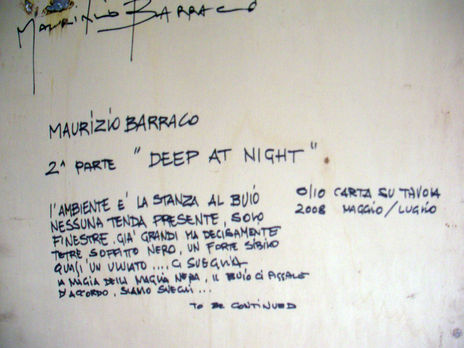 MAURIZIO BARRACO
MAURIZIO BARRACO
2ª PARTE "DEEP AT NIGHT"
L'AMBIENTE E' LA STANZA AL BUIO
NESSUNA TENDA PRESENTE, SOLO
FINESTRE. GIA' GRANDI MA DECISAMENTE
TETRE SOFFITTO NERO, UN FORTE SIBILO
QUASI UN ULULATO .... CI SVEGLIA
LA MAGIA DELLA MAGLIA NERA, IL BUIO CI ASSALE
D'ACCORDO, SIAMO SVEGLI ...
TO BE CONTINUED
O/IO CARTA SU TAVOLA
2008 MAGGIO/LUGLIO